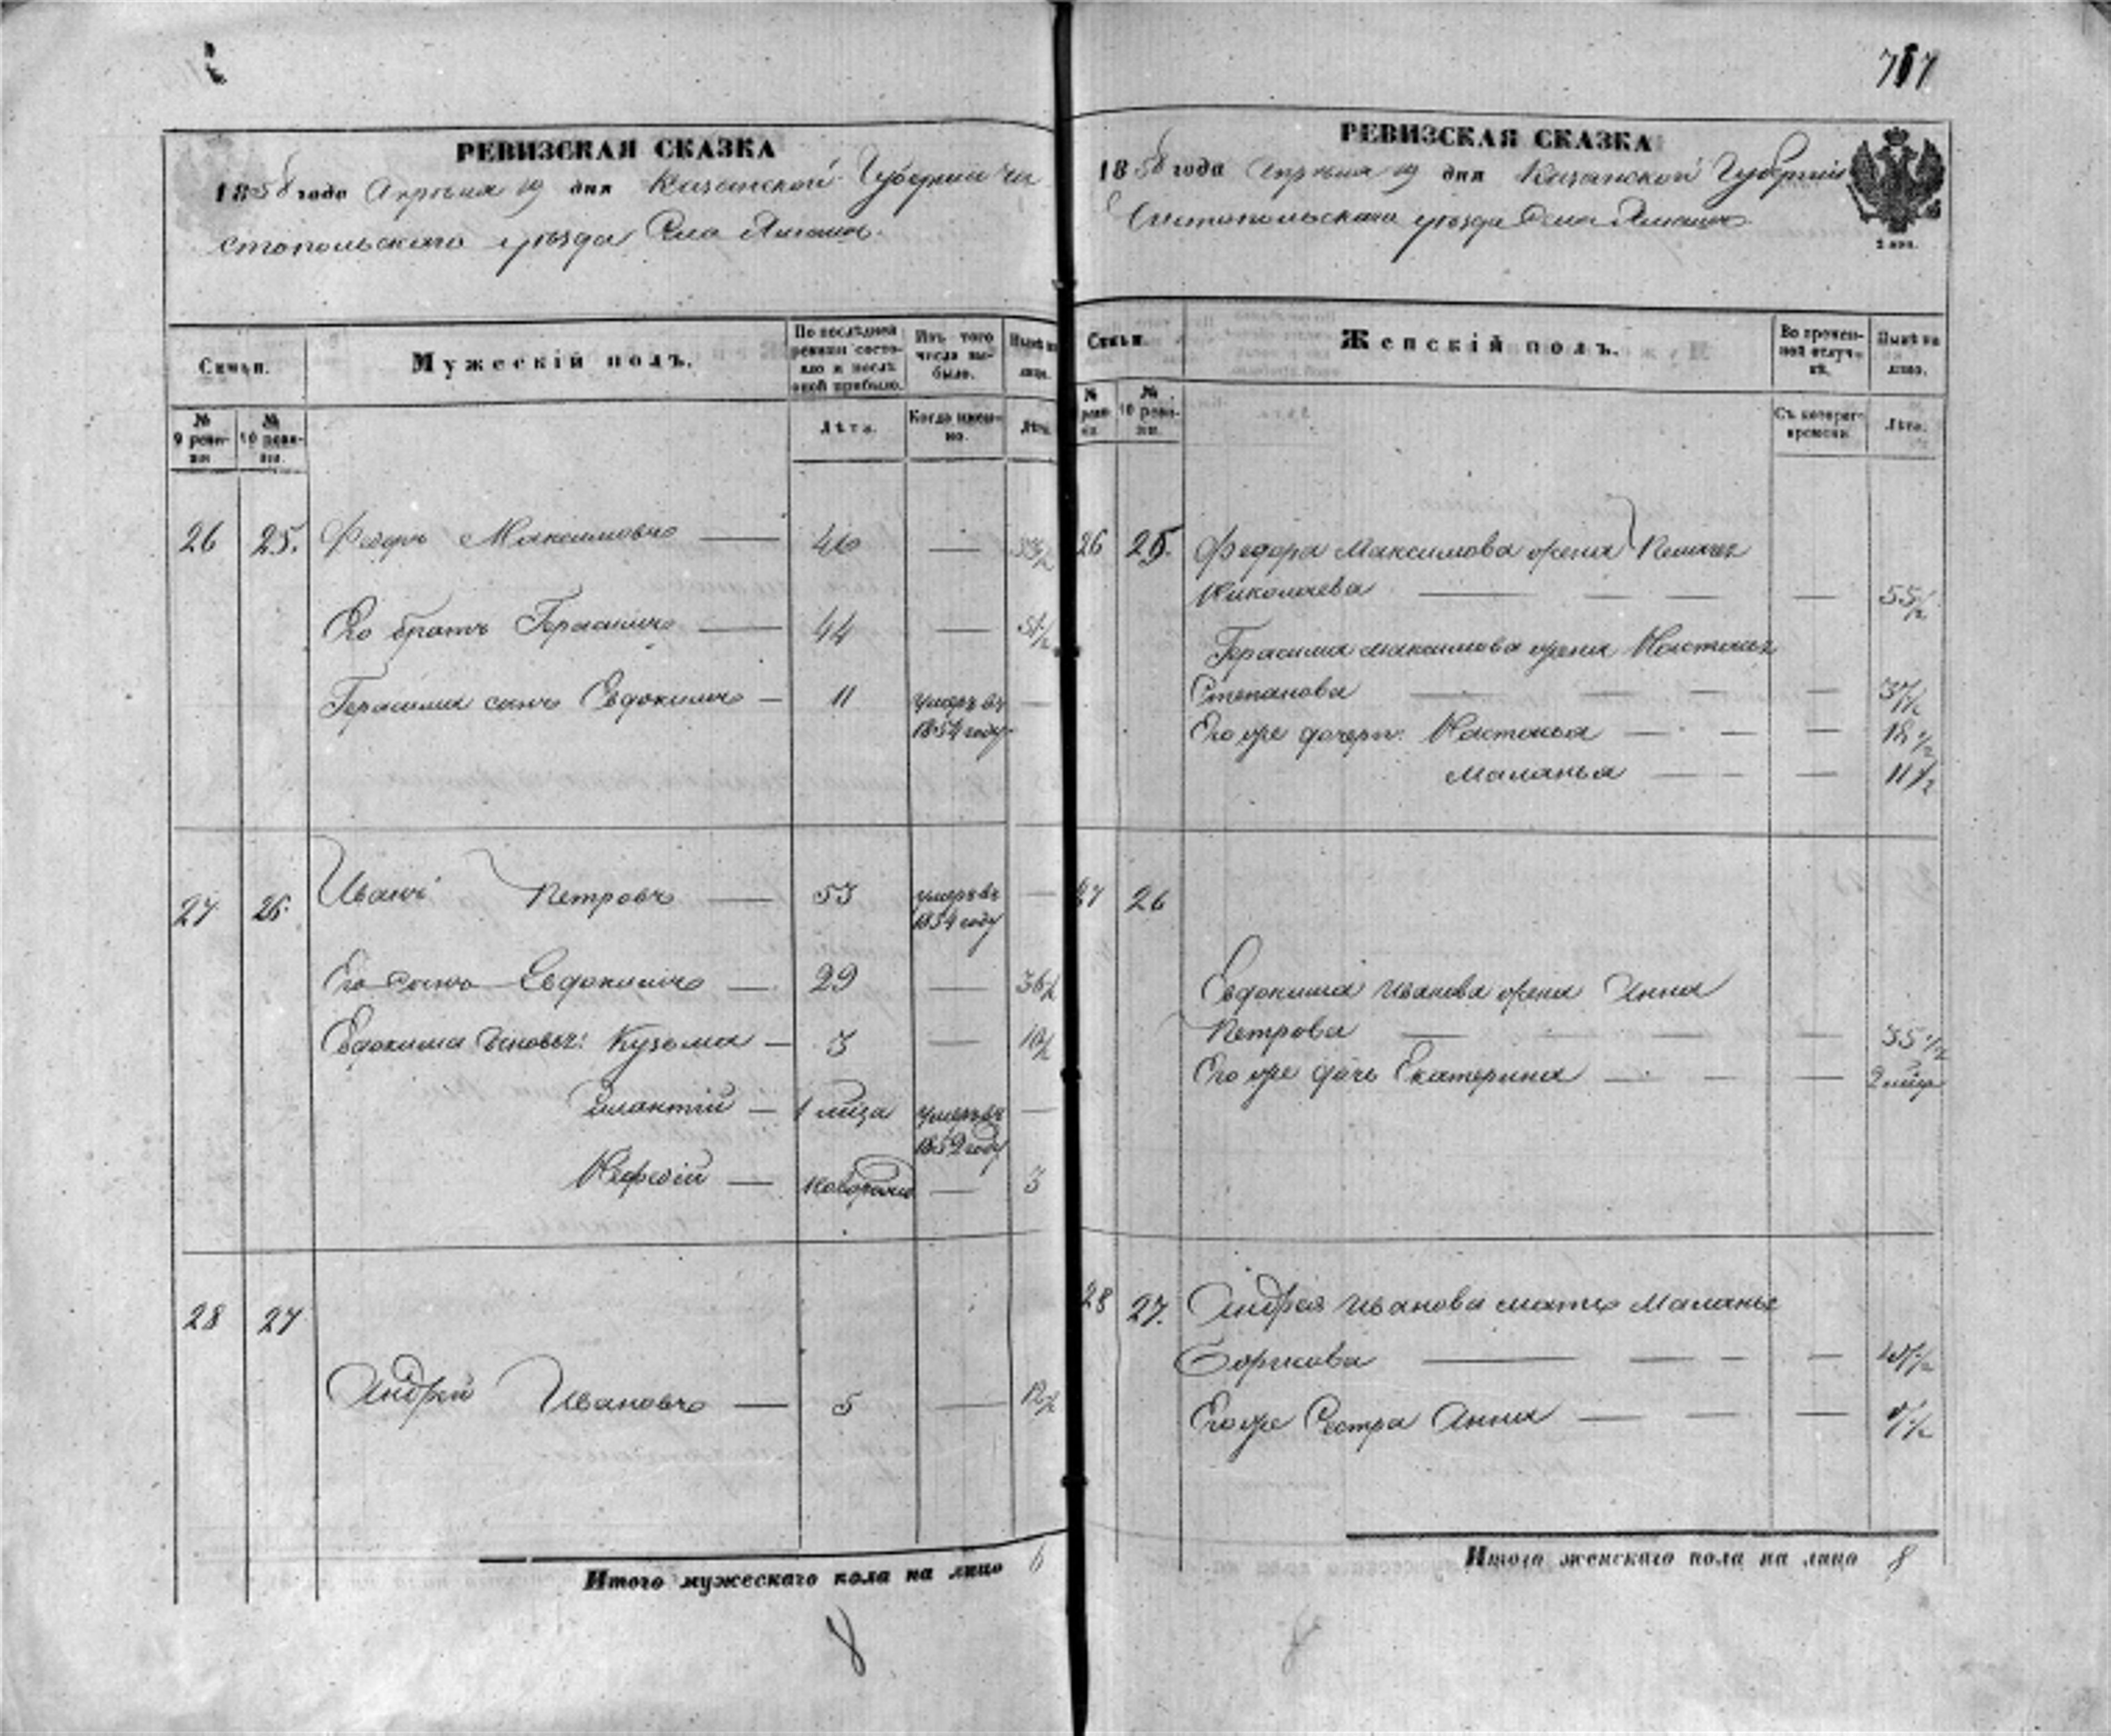 717
РЕВИЗСКАЯ СКАЗКА
1858 года Апреля 19 дня Казанской Губернии Чи
стопольскаго уезда Села
Семьи. Мужескій полъ. По последней ревизіи состояло и после оной прибыло. Изъ того числа выбыло. Ныне на лицо.
№ 9 ревизіи № 10 ревизіи. Лѣта. Когда именно. Лѣта
26 25. Федоръ Максимовъ — 46 —
Его братъ Герасимъ — 44 —
Герасима сынъ Евдокимъ — 11 умеръ въ 1854 году —
27 26 Иванъ Петровъ — 53 умеръ въ 1854 году —
Его сынъ Евдокимъ — 29 — 36½
Евдокима сыновья: Кузьма — 3 — 10½
— умеръ въ 1852 году —
— новорожд — 3
28 27
Андрей Ивановъ — 5 — 12½
Итого мужескаго пола на лицо 6
8
РЕВИЗСКАЯ СКАЗКА
1858 года Апреля 19 дня Казанской Губерніи
Чистопольскаго уезда Села
2 коп.
Семьи. Женскій полъ. Во временной отлучкѣ. Нынѣ на лицо.
№ ревизіи. № 10 ревизіи. Съ котораго времени Лѣта.
26 25. Федора Максимова жена
Николаева — — — — 55½
Герасима Максимова жена Настасья
Степанова — — — — 37½
Его же дочери: Настасья — — — 18½
Маланья — — — 11½
27 26
Евдокима Иванова жена Анна
Петрова — — — — 35½
Его же дочь Екатерина — — —
28 27. Андрея Иванова мать Маланья
Борисова — — — —
Его же Сестра Анна — — —
Итого женскаго пола на лицо 8